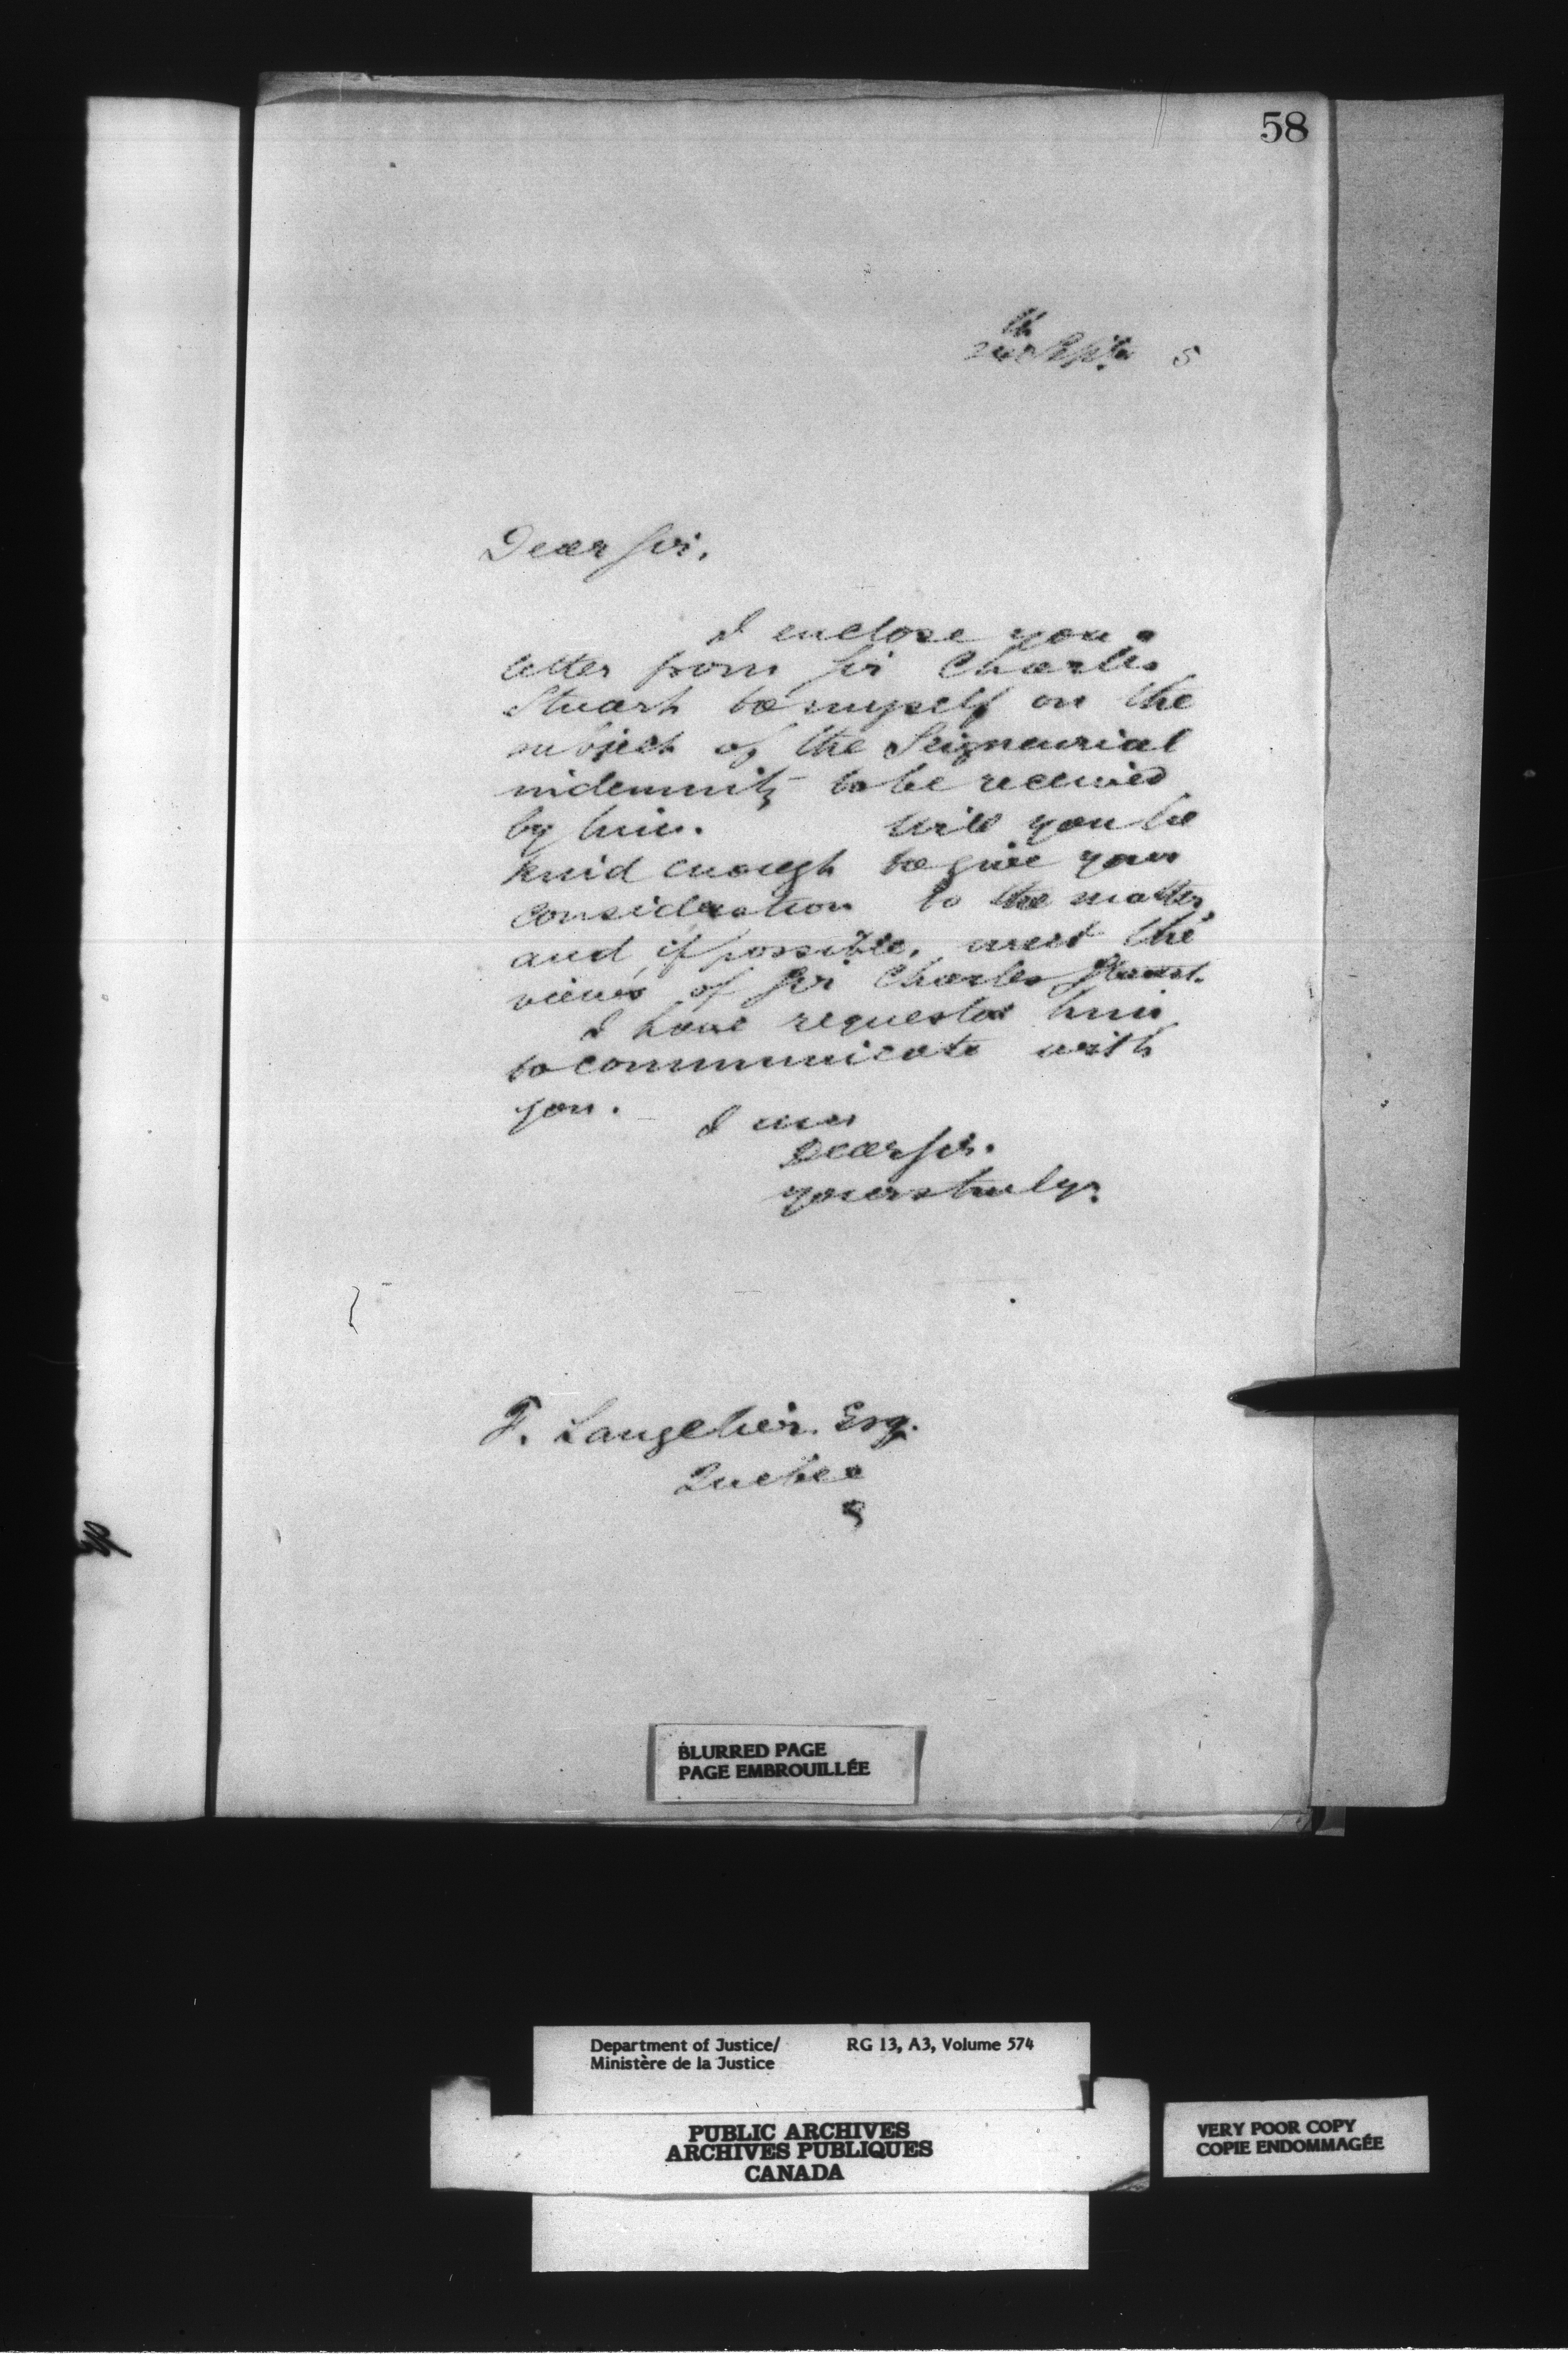 58
th
Sept. 5
Dear Sir,
I enclose you a
letter from Sir Charles
Stuart to myself on the
subject of the Seigneurial
indemnity to be received
by him. Will you be
kind enough to give your
consideration to the matter,
and if possible, meet the
views of Sir Charles Stuart.
I have requested him
to communicate with
you.
I am
Dear Sir.
yours truly,
F. Langelier. Esq.
Quebec
BLURRED PAGE
PAGE EMBROUILLÉE
Department of Justice/ RG 13, A3, Volume 574
Ministère de la Justice
PUBLIC ARCHIVES
ARCHIVES PUBLIQUES
CANADA
VERY POOR COPY
COPIE ENDOMMAGÉE